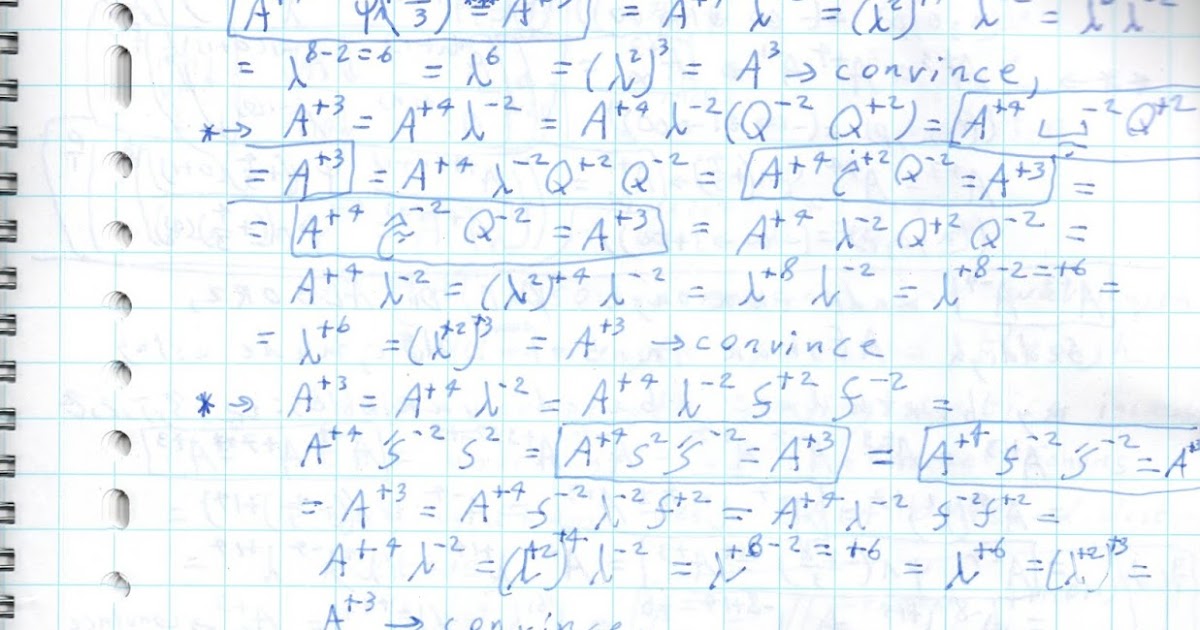 = λ^{8-2=6} = λ^6 = (λ^2)^3 = A^3 → convince,
* → A^{+3} = A^{+4} λ^{-2} = A^{+4} λ^{-2} (Q^{-2} Q^{+2}) = A^{+4} ^{-2} Q^{+2}
= A^{+3} = A^{+4} λ^{-2} Q^{+2} Q^{-2} = A^{+4} ^{+2} Q^{-2} = A^{+3} =
= A^{+4} ^{-2} Q^{-2} = A^{+3} = A^{+4} λ^{-2} Q^{+2} Q^{-2} =
A^{+4} λ^{-2} = (λ^2)^{+4} λ^{-2} = λ^{+8} λ^{-2} = λ^{+8-2=+6} =
= λ^{+6} = (λ^{+2})^{+3} = A^{+3} → convince
* → A^{+3} = A^{+4} λ^{-2} = A^{+4} λ^{-2} S^{+2} S^{-2} =
A^{+4} S^{-2} S^2 = A^{+4} S^2 S^{-2} = A^{+3} = A^{+4} S^{-2} S^{-2} = A^{+3}
= A^{+3} = A^{+4} S^{-2} λ^{-2} S^{+2} = A^{+4} λ^{-2} S^{-2} S^{+2} =
A^{+4} λ^{-2} = (λ^{+2})^{+4} λ^{-2} = λ^{+8-2=+6} = λ^{+6} = (λ^{+2})^{+3} =
A^{+3} → convince